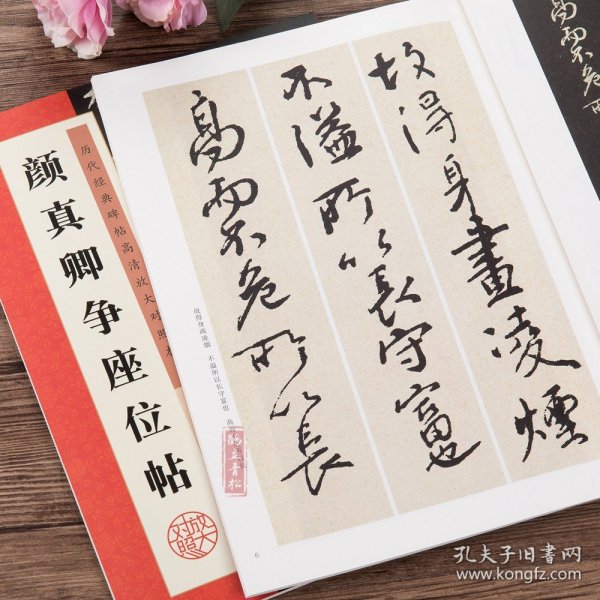 故得身畫凌煙
不溢所以長守富也
高而不危所以長
故得身画凌烟 不溢所以长守富也
6
历代经典碑帖高清放大对照
颜真卿争座位帖
放大对照
高而不危所
孔夫子旧书网
www.kongfz.com